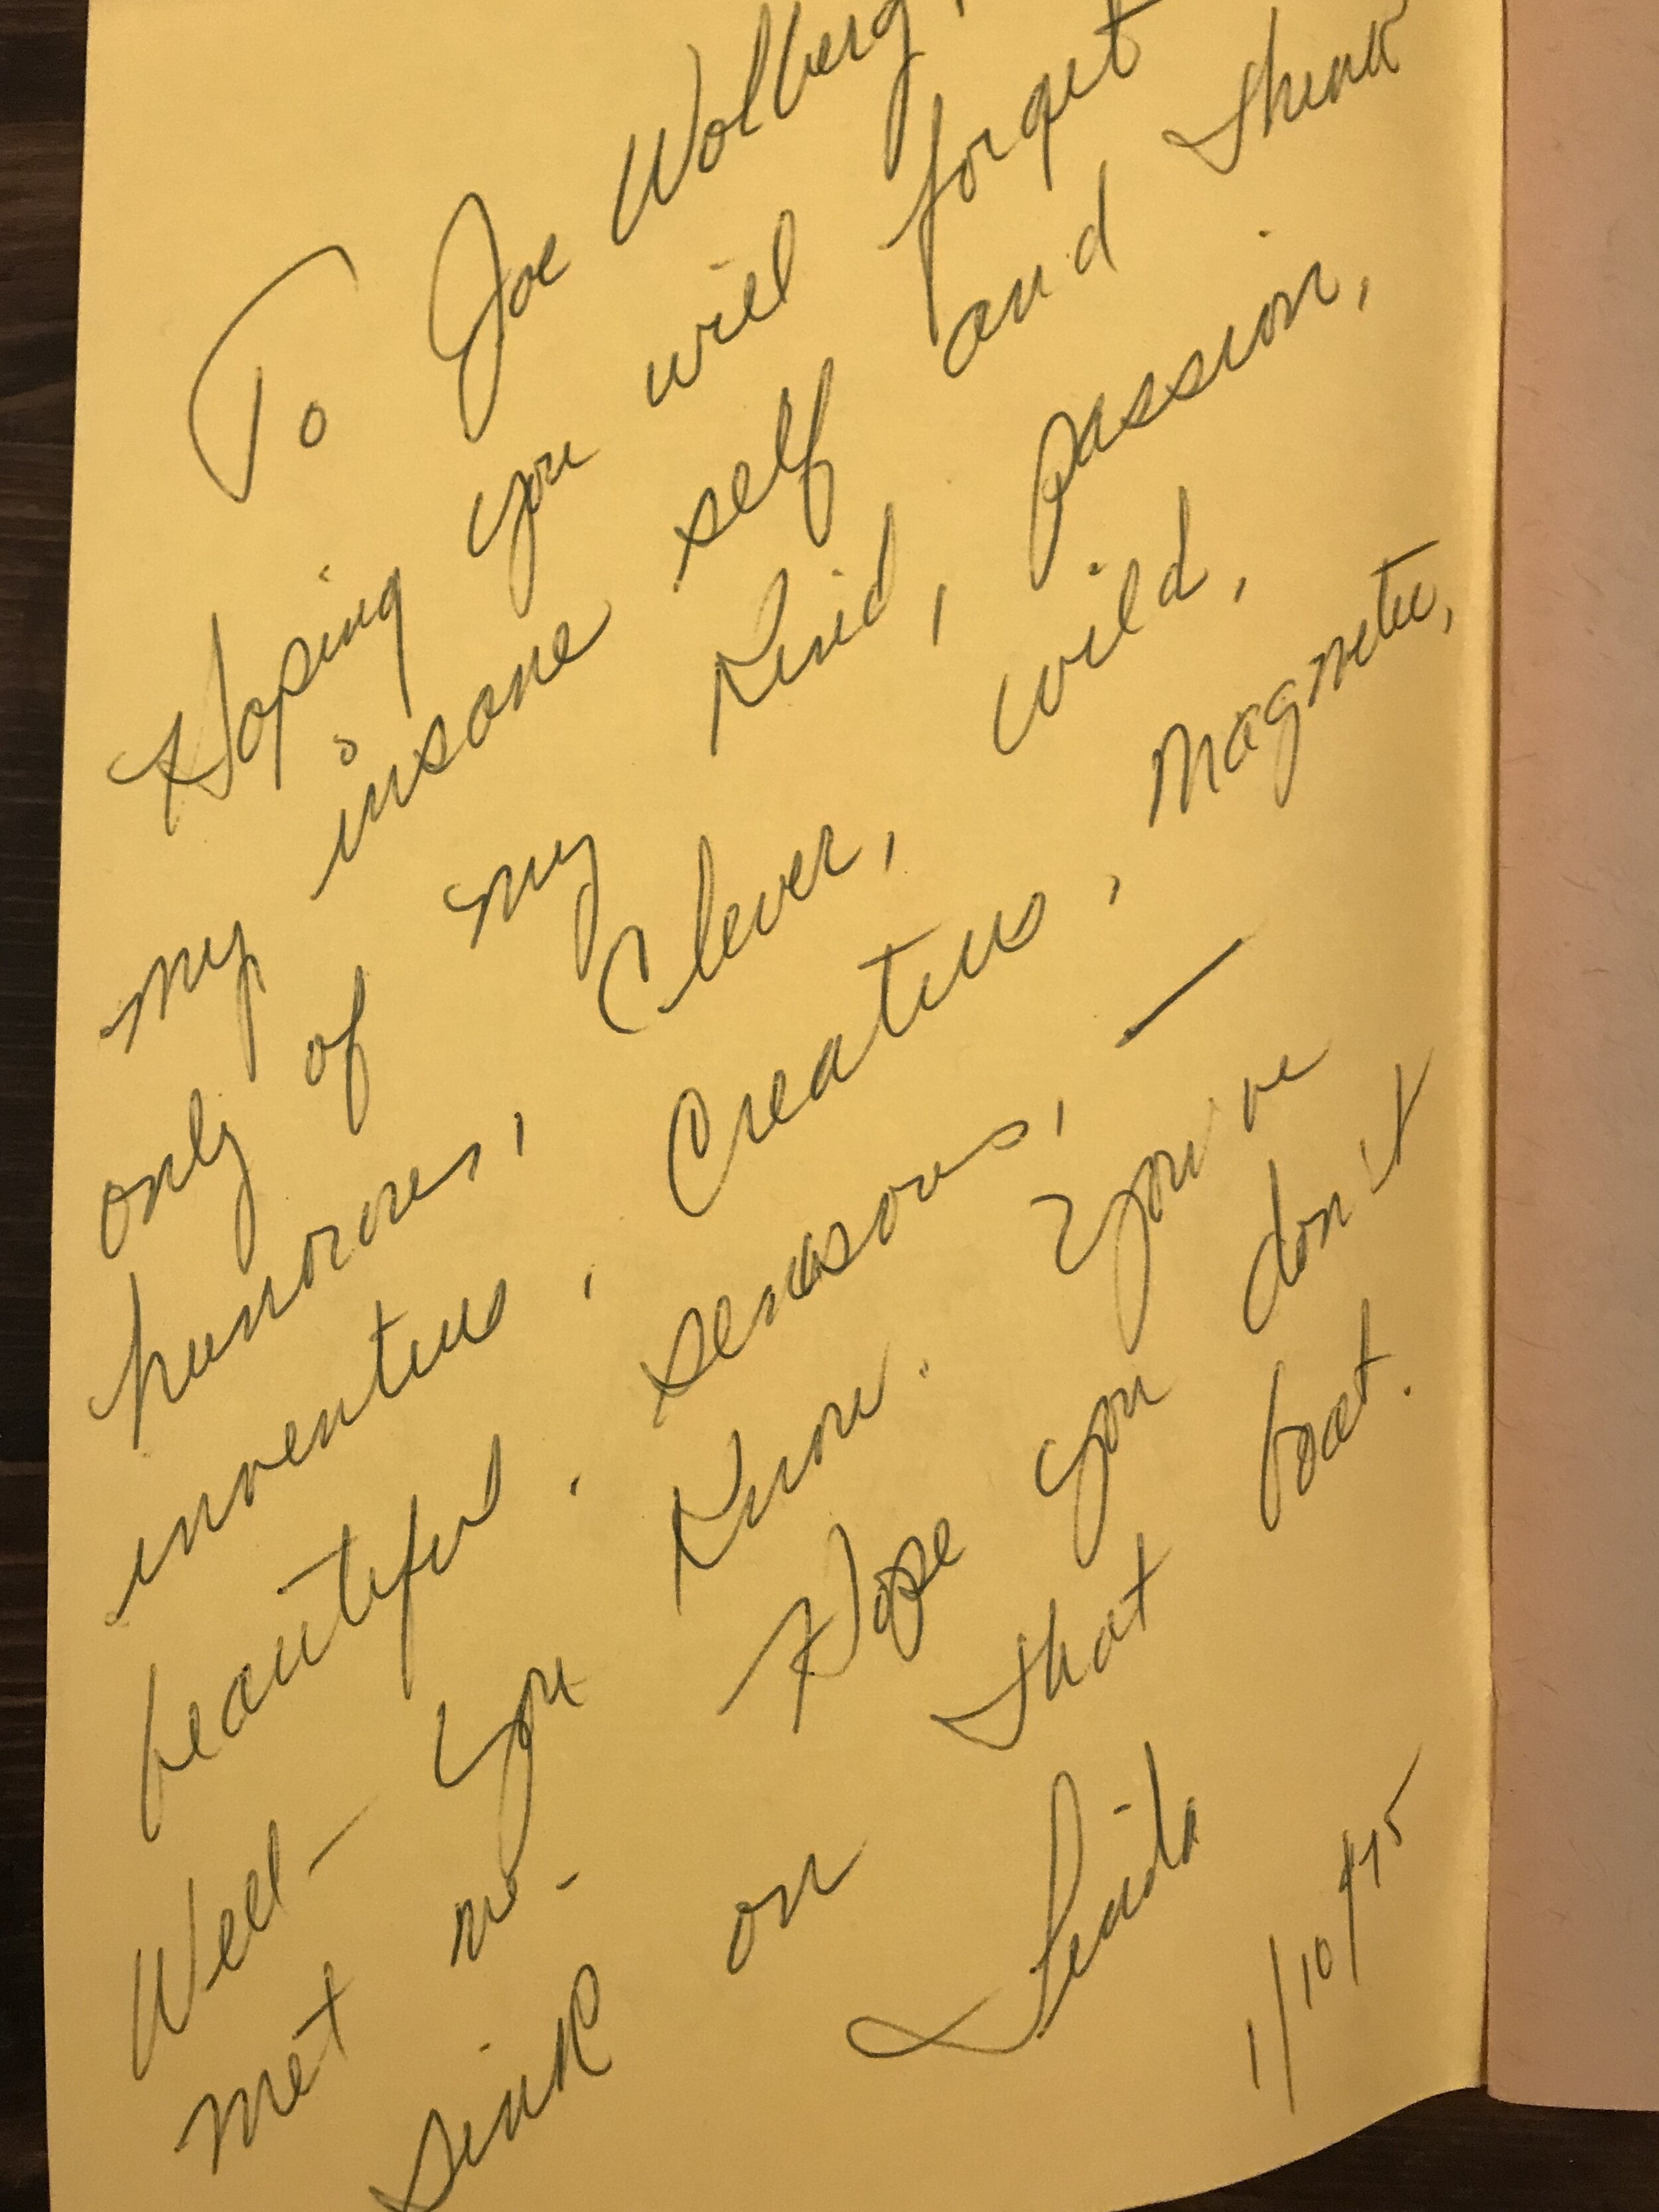 To Joe Wolberg,
Hoping you will forget
my insane self and think
only of my kind, passion,
humorous, clever, wild,
inventive, creative, magnetic,
beautiful, sensaous, —
Well — you know. You've
met me - Hope you don't
sink on that boat.
Linda
1/10/75